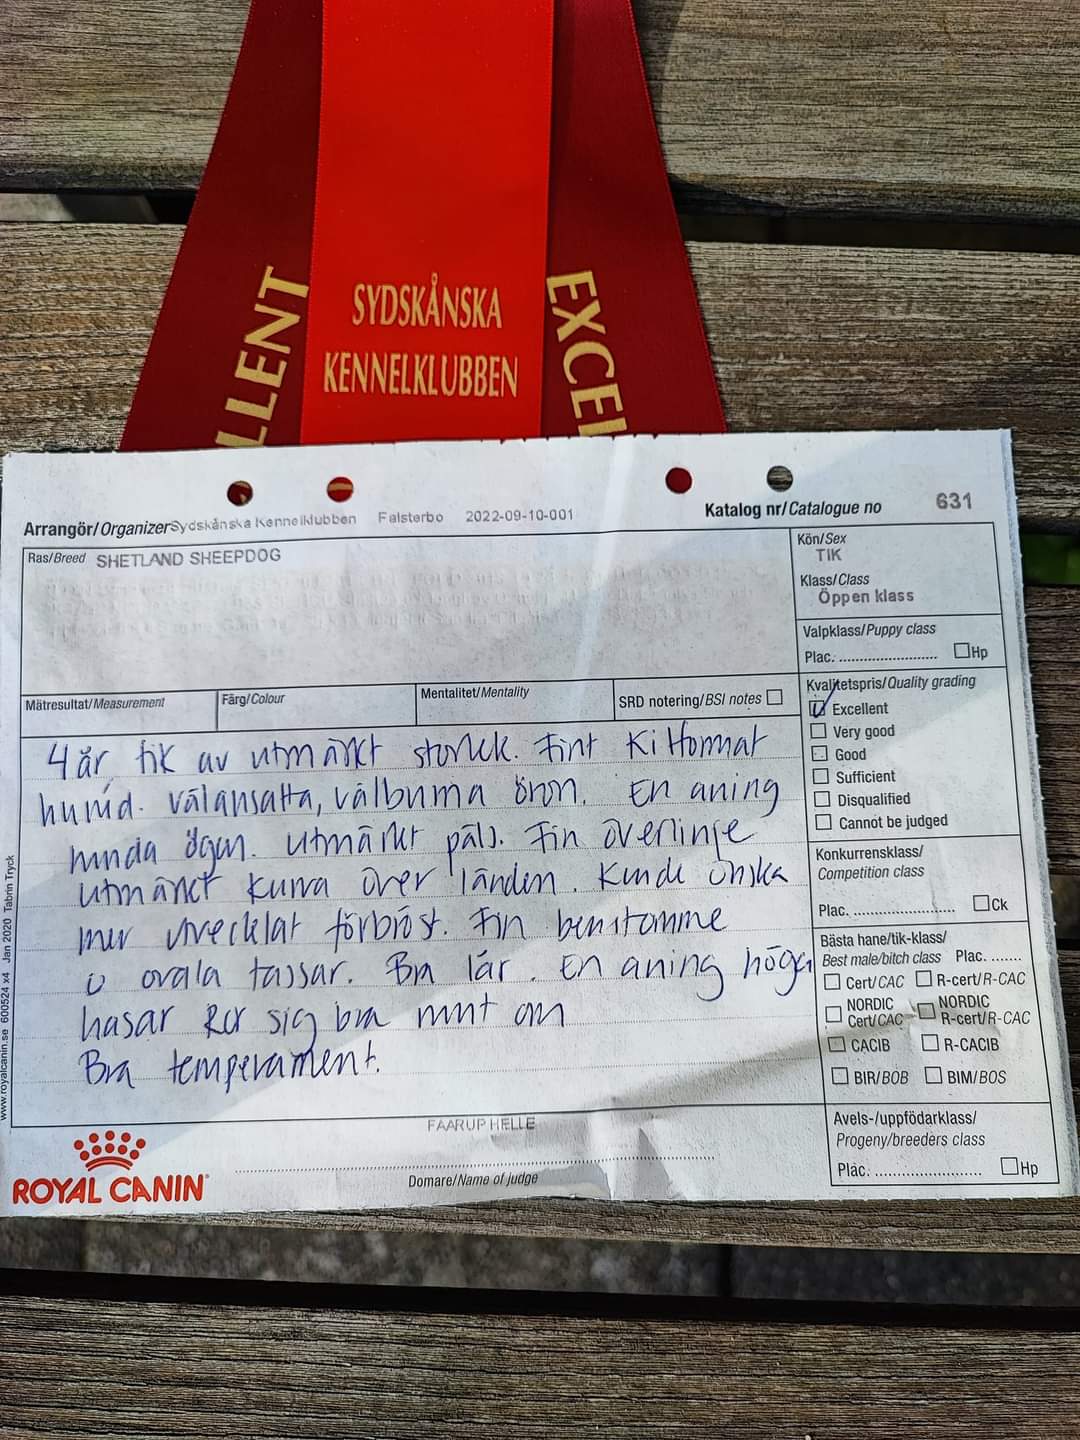 SYDSKÅNSKA
KENNELKLUBBEN
LLENT
EXCEL
Arrangör/Organizer Sydskånska Kennelklubben Falsterbo 2022-09-10-001
Katalog nr/Catalogue no 631
Ras/Breed SHETLAND SHEEPDOG
Kön/Sex
TIK
Klass/Class
Öppen klass
Valpklass/Puppy class
Plac. ........................ Hp
Mätresultat/Measurement
Färg/Colour
Mentalitet/Mentality
SRD notering/BSI notes
Kvalitetspris/Quality grading
Excellent
Very good
Good
Sufficient
Disqualified
Cannot be judged
Konkurrensklass/
Competition class
Plac. ........................ Ck
Bästa hane/tik-klass/
Best male/bitch class Plac. .......
Cert/CAC R-cert/R-CAC
NORDIC Cert/CAC NORDIC R-cert/R-CAC
CACIB R-CACIB
BIR/BOB BIM/BOS
Avels-/uppfödarklass/
Progeny/breeders class
Plac. ........................ Hp
4 år, tik av utmärkt storlek. Fint kilformat
huvud. välansatta, välburna öron. En aning
runda ögon. utmärkt päls. Fin överlinje
utmärkt kurva över länden. Kunde önska
mer utvecklat förbröst. Fin benstomme
o ovala tassar. Bra lår. En aning höga
hasar Rör sig bra runt om
Bra temperament.
FAARUP HELLE
Domare/Name of judge
ROYAL CANIN
www.royalcanin.se 600524 x4 Jan 2020 Tabrin Tryck